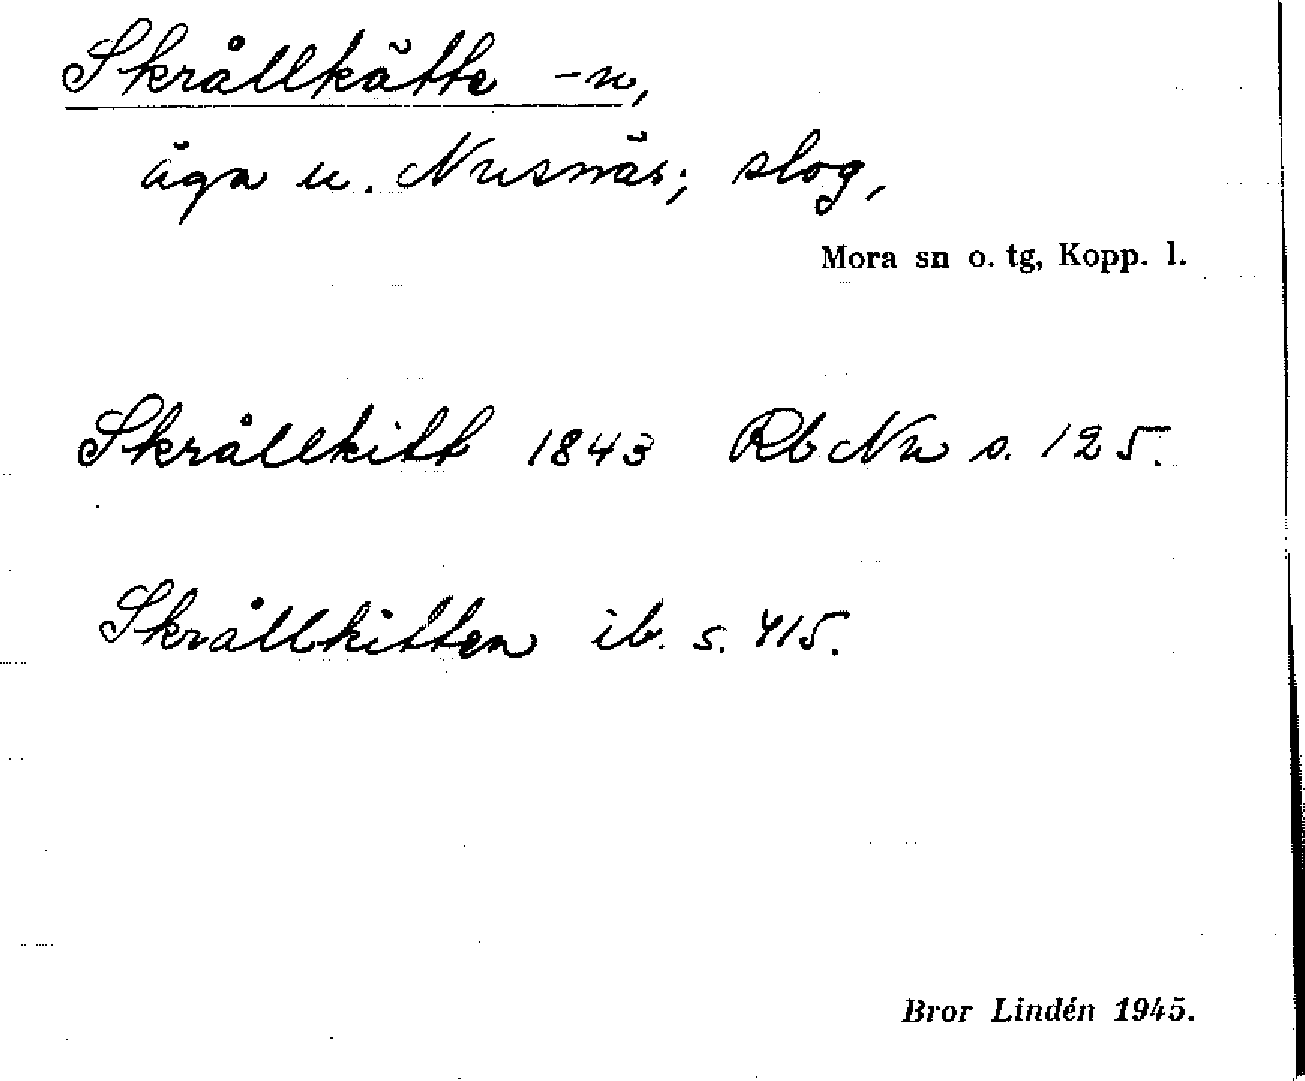 Skrållkätte -n,
äga u. Nusnäs; slog,
Mora sn o. tg, Kopp. l.
Skrållkitt 1843 Rb Nu s. 125.
Skrållkitten ib. s. 415.
Bror Lindén 1945.